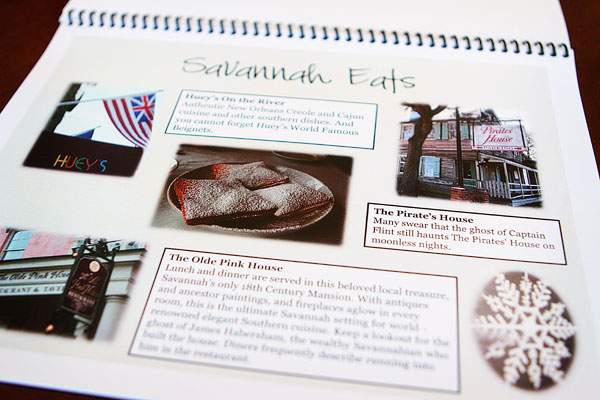 Savannah Eats
Huey's On the River
Authentic New Orleans Creole and Cajun
cuisine and other southern dishes. And
you cannot forget Huey's World Famous
Beignets.
HUEY'S
Pirates'
House
The Pirate's House
Many swear that the ghost of Captain
Flint still haunts The Pirates' House on
moonless nights.
The Olde Pink House
RESTAURANT & TAVERN
The Olde Pink House
Lunch and dinner are served in this beloved local treasure,
Savannah's only 18th Century Mansion. With antiques
and ancestor paintings, and fireplaces aglow in every
room, this is the ultimate Savannah setting for world -
renowned elegant Southern cuisine. Keep a lookout for the
ghost of James Habersham, the wealthy Savannahian who
built the house. Diners frequently describe running into
him in the restaurant.